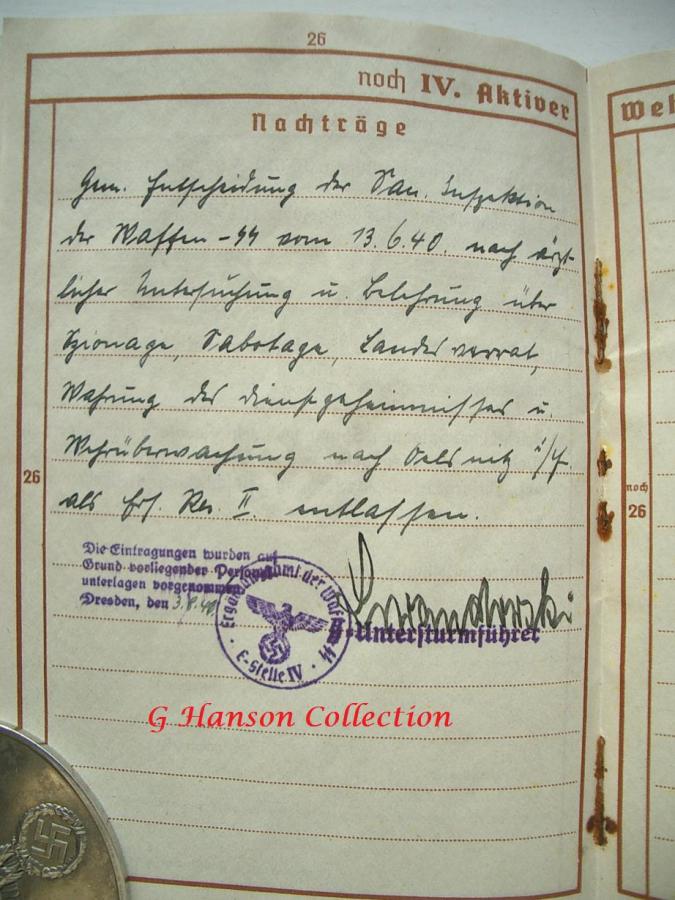 26
noch IV. Aktiver
Weh
Nachträge
Gem. Entscheidung der San. Inspektion
der Waffen-SS vom 13.6.40. nach ärzt-
licher Untersuchung u. Belehrung über
Spionage, Sabotage, Landesverrat,
Wahrung des Dienstgeheimnisses u.
Wehrüberwachung nach Oelsnitz i/V.
als Ers. Res. II. entlassen.
26
noch
26
Die Eintragungen wurden auf
Grund vorliegender Personal
unterlagen vorgenommen
Dresden, den 3.8.40
Ergänzungsamt der Waffen SS
E-Stelle IV
Untersturmführer
G Hanson Collection